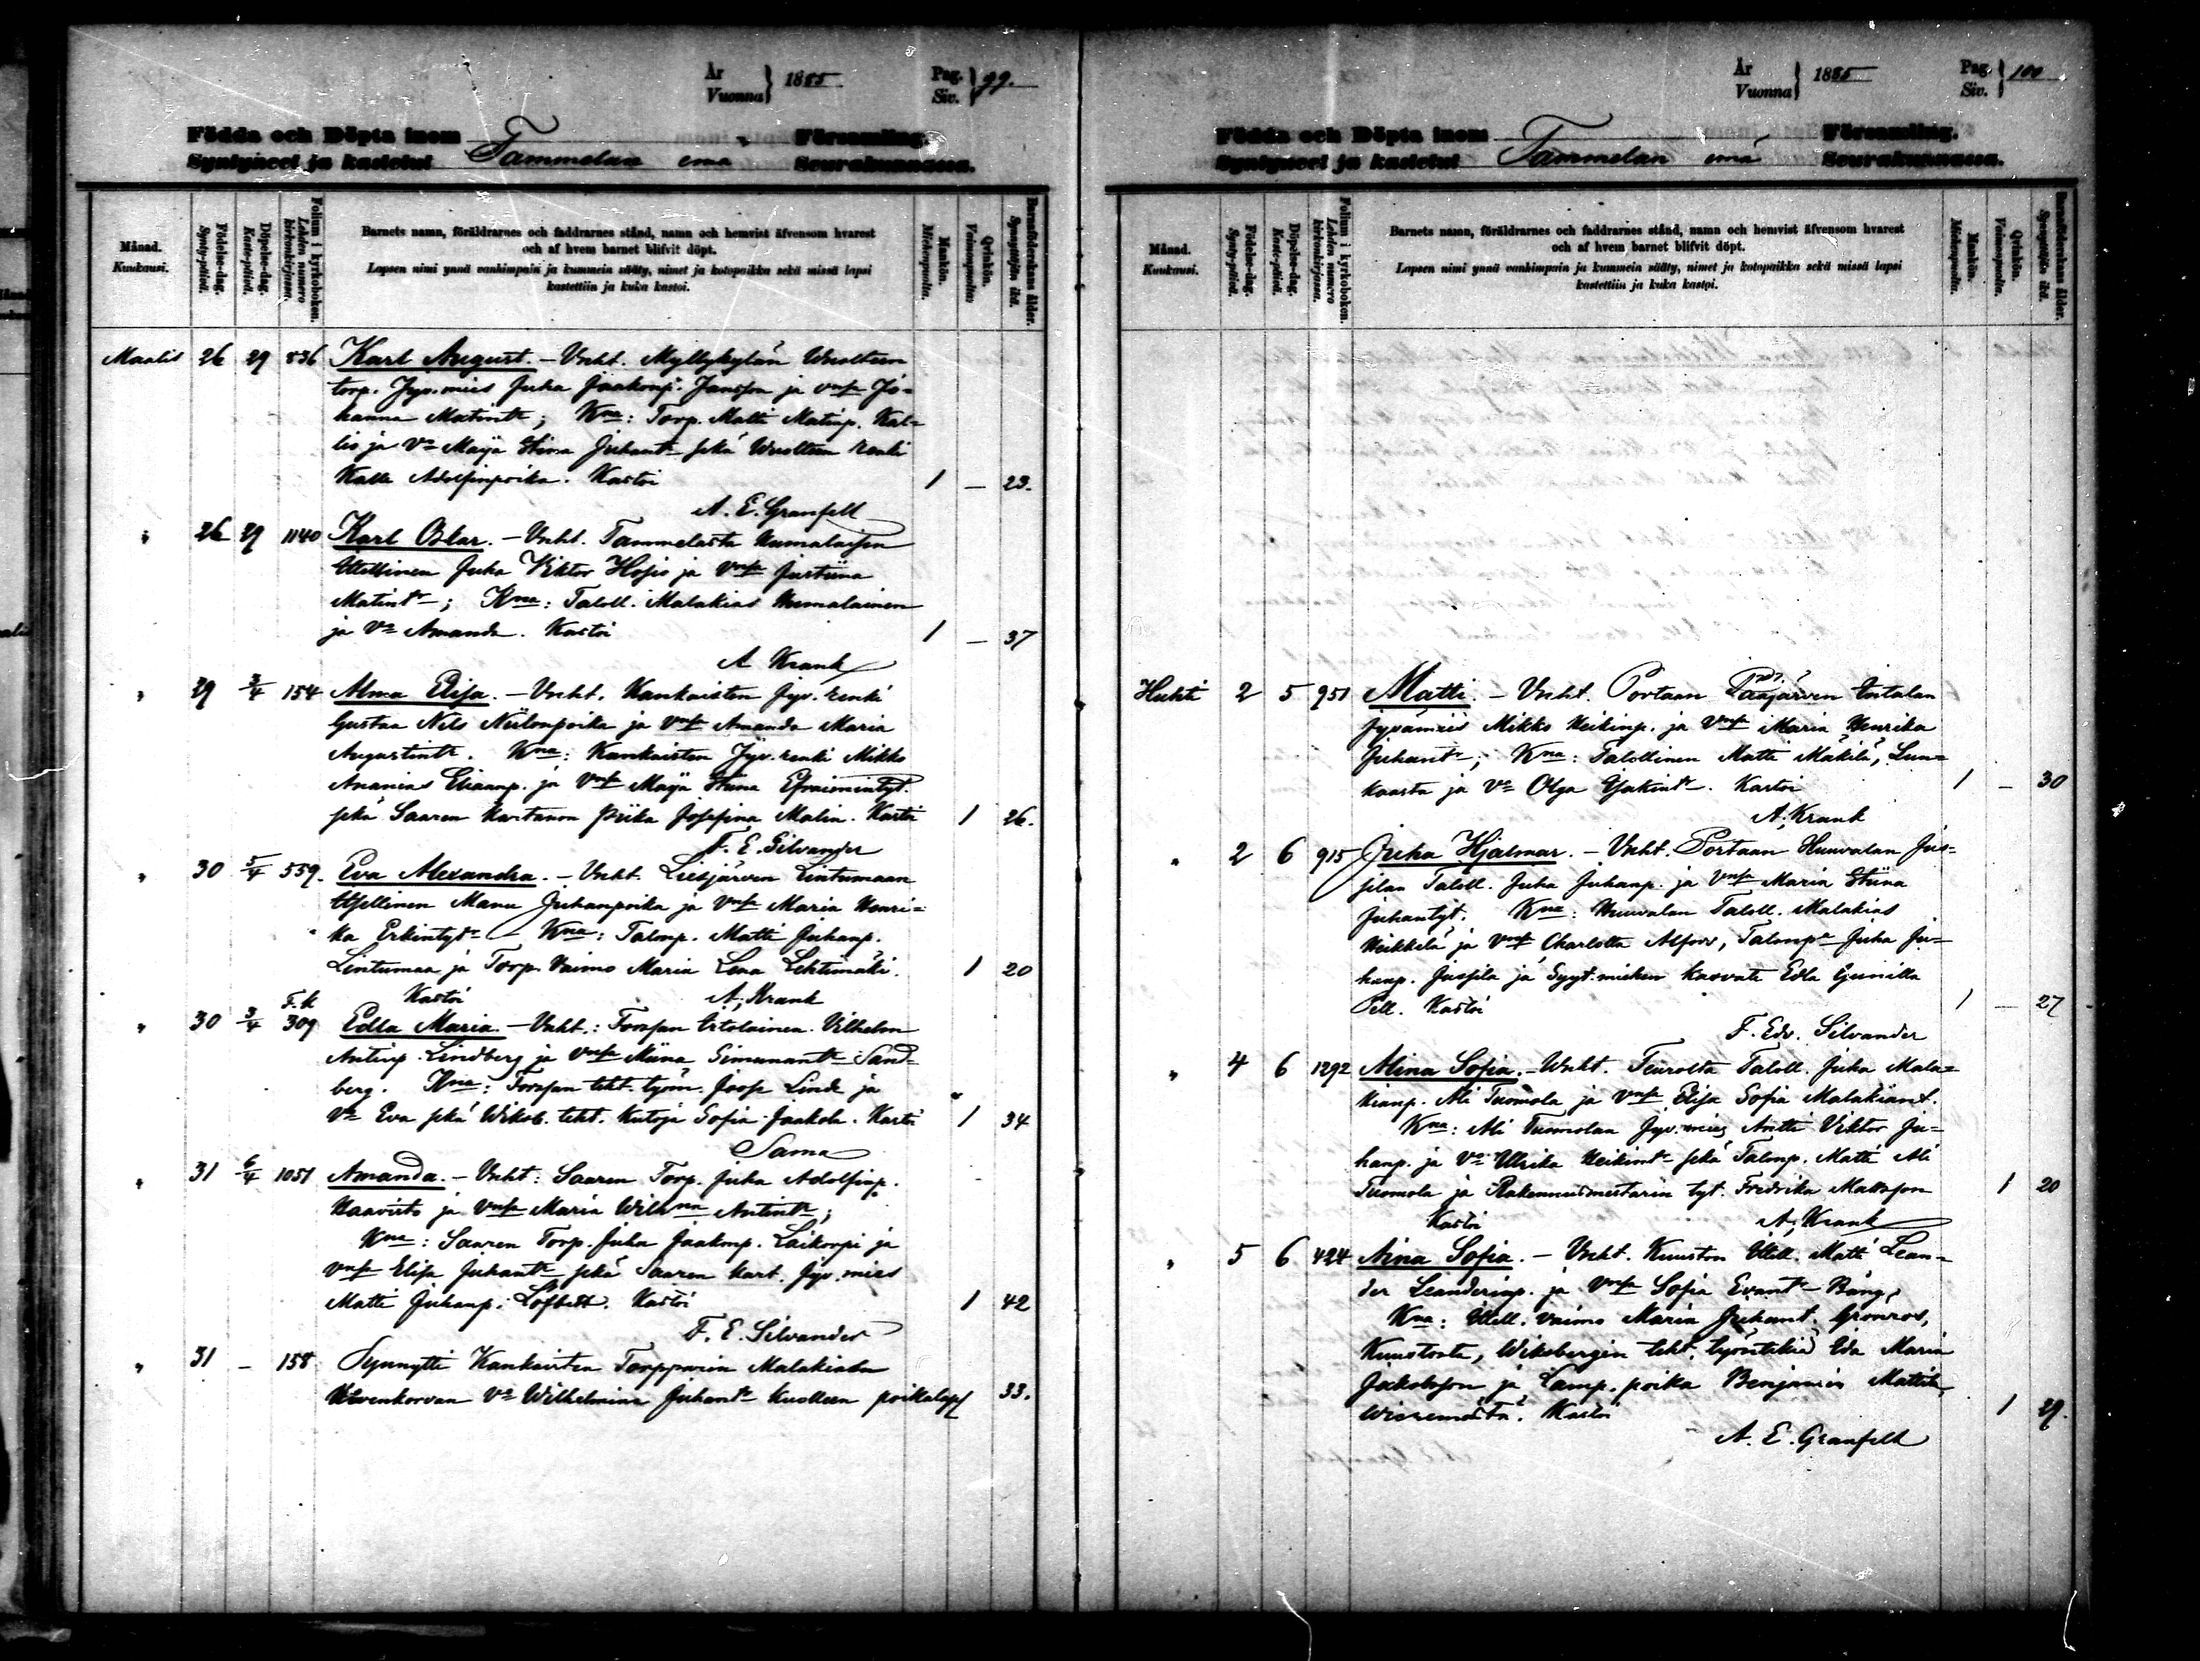 År
Vuonna } 1885
Pag.
Siv. } 99.
Födda och Döpta inom
Syntyneet ja kastetut Tammelan emä
Församling.
Seurakunnassa.
Månad.
Kuukausi.
Födelse-dag.
Synty-päivä.
Döpelse-dag.
Kaste-päivä.
Folium i kyrkoboken.
Lehden numero kirkonkirjassa.
Barnets namn, föräldrarnes och faddrarnes stånd, namn och hemvist äfvensom hvarest
och af hvem barnet blifvit döpt.
Lapsen nimi ynnä vanhimpain ja kummein sääty, nimet ja kotopaikka sekä missä lapsi
kastettiin ja kuka kastoi.
Mankön.
Miehenpuolia.
Qvinkön.
Vaimonpuolia.
Barnaföderskans ålder.
Synnyttäjän ikä.
Maalis 26 29 836 Karl August. – Vnht. Myllykylän Wuoltun
torp. Jyv.mies Juha Jaakonp. Jansson ja vmsa Jo=
hanna Matintr; Kna: Torp. Matti Matinp. Kal=
lio ja Va Maija Stina Juhantr sekä Wuoltun renki
Kalle Adolfinpoika. Kastoi 1 – 23.
A. E. Granfelt
" 26 29 1140 Karl Oskar. – Vnht. Tammelasta Humalaisen
Itsellinen Juha Viktor Hojio ja Vmsa Justiina
Matintr; Kna: Taloll. Malakias Humalainen
ja Va Amanda. Kastoi 1 – 37
A Krank
" 29 3/4 154 Alma Elisa. – Vnht. Kankaisten Jyv. renki
Gustaa Nels Niilonpoika ja Vmsa Amanda Maria
Augustintr. Kna: Kankaisten Jyv. renki Mikko
Ananias Eliaanp. ja Vmsa Maija Stiina Efraimintyt.
sekä Saaren kartanon piika Josefina Malin. Kastoi 1 26.
F. E. Silvander
" 30 5/4 559. Eva Alexandra. – Vnht. Liesjärven Lintumaan
Itsellinen Manu Juhanpoika ja Vmsa Maria Henri=
ka Erkintytr – Kna: Talonp. Matti Juhanp.
Lintumaa ja Torp. Vaimo Maria Lena Lehtimäki. 1 20
Kastoi A. Krank
" 30 3/4 F.k 309 Edla Maria – Vnht.: Forssan Irtolainen Vilhelm
Antinp. Lindberg ja Vmsa Miina Simunantr Sand=
berg. Kna: Forssan teht. työm. Joos. Lind ja
Va Eva sekä Wiksb. teht. Kutoja Sofia Jaakola. Kastoi 1 34
Sama
" 31 6/4 1051 Amanda. – Vnht: Saaren Torp. Juha Adolfinp.
Haavisto ja Vmsa Maria Wilhna Antintr;
Kna: Saaren Torp. Juha Jaakonp. Laikorpi ja
Vmsa Elisa Juhantr sekä Saaren kart. Jyv. mies
Matti Juhanp. Löfstedt. Kastoi 1 42
F. E. Silvander
" 31 – 158 Synnytti Kankaisten Torpparin Malakiaan
Hevenkorvan Va Wilhelmina Juhantr kuolleen poikalaps 33.
År
Vuonna } 1885
Pag.
Siv. } 100
Födda och Döpta inom
Syntyneet ja kastetut Tammelan emä
Församling.
Seurakunnassa.
Månad.
Kuukausi.
Födelse-dag.
Synty-päivä.
Döpelse-dag.
Kaste-päivä.
Folium i kyrkoboken.
Lehden numero kirkonkirjassa.
Barnets namn, föräldrarnes och faddrarnes stånd, namn och hemvist äfvensom hvarest
och af hvem barnet blifvit döpt.
Lapsen nimi ynnä vanhimpain ja kummein sääty, nimet ja kotopaikka sekä missä lapsi
kastettiin ja kuka kastoi.
Mankön.
Miehenpuolia.
Qvinkön.
Vaimonpuolia.
Barnaföderskans ålder.
Synnyttäjän ikä.
Huhti 2 5 951 Matti. – Vnht. Portaan Paajärven Intalan
jyvämies Mikko Heikinp. ja Vmsa Maria Henrika
Juhantr; Kna: Talollinen Matti Mäkilä, Lun=
kaasta ja Va Olga Isakintr. Kastoi 1 – 30
A. Krank
" 2 6 915 Juha Hjalmar. – Vnht. Portaan Huuvalan Jus=
silan Taloll. Juha Juhanp. ja Vmsa Maria Stiina
Juhantyt. Kna: Huuvalan Taloll. Malakias
Heikkilä ja Vmsa Charlotta Alfors, Talonp. Juha Ju=
hanp. Jussila ja Syyt.miehen kasvate Edla Gunilla
Pell. Kastoi 1 – 27
F. Edv. Silvander
" 4 6 1292 Alina Sofia. – Vnht. Teurolta Taloll. Juha Mala=
kianp. Ali Tuomola ja Vmsa Elisa Sofia Malakiant.
Kna: Ali Tuomolan Jyv.mies Antti Viktor Ju=
hanp. ja Va Ulrika Heikintr sekä Talonp. Matti Ali
Tuomola ja Rakennusmestarin tyt. Fredrika Mattsson 1 20
Kastoi A. Krank
" 5 6 424 Aina Sofia. – Vnht. Kuuston Itsell. Matti Lean=
der Leanderinp. ja Vmsa Sofia Evantr Bång,
Kna: Itsell. vaimo Maria Juhant. Grönros,
Kuustosta, Wiksbergin teht. työntekiä Ida Maria
Jakobsson ja Lamp. poika Benjamin Mattila
Wieremältä. Kastoi 1 29.
A. E. Granfelt